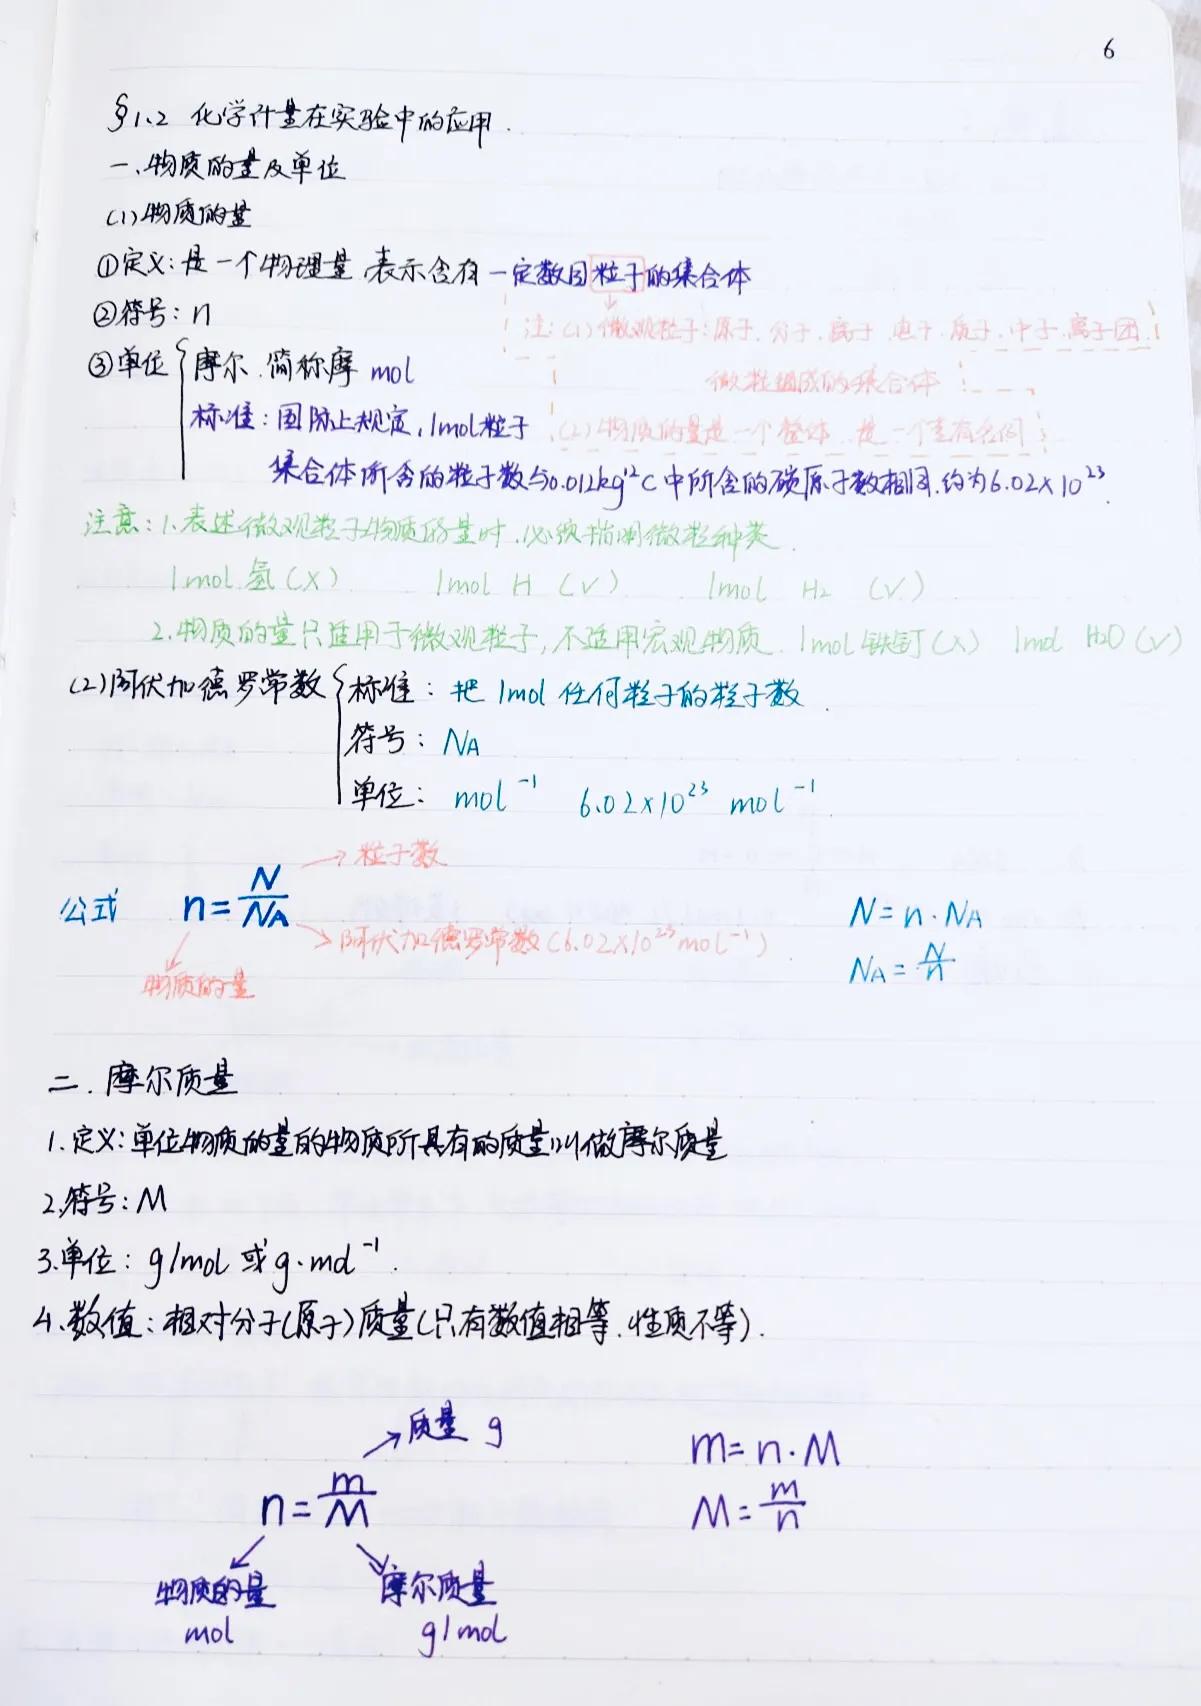 6
§1.2 化学计量在实验中的应用.
一、物质的量及单位
(1)物质的量
①定义:是一个物理量.表示含有一定数目粒子的集合体
②符号:n
注:(1)微观粒子:原子.分子.离子.电子.质子.中子.离子团.
③单位 摩尔.简称摩 mol
微粒组成的集合体
标准:国际上规定,1mol粒子
(2)物质的量是一个整体.是一个专有名词
集合体所含的粒子数与0.012kg¹²C中所含的碳原子数相同.约为6.02×10²³.
注意:1.表述微观粒子物质的量时.必须指明微粒种类.
1mol.氢(×) 1mol H (√) 1mol H₂ (√)
2.物质的量只适用于微观粒子,不适用宏观物质. 1mol铁钉(×) 1mol H₂O(√)
(2)阿伏加德罗常数 标准:把1mol任何粒子的粒子数
符号:NA
单位: mol⁻¹ 6.02×10²³ mol⁻¹
粒子数
公式 n=N/NA N=n·NA
阿伏加德罗常数(6.02×10²³mol⁻¹)
NA=N/n
物质的量
二.摩尔质量
1.定义:单位物质的量的物质所具有的质量叫做摩尔质量
2.符号:M
3.单位:g/mol或g·mol⁻¹.
4.数值:相对分子(原子)质量(只有数值相等.性质不等).
质量 g
m=n·M
n=m/M M=m/n
物质的量 摩尔质量
mol g/mol